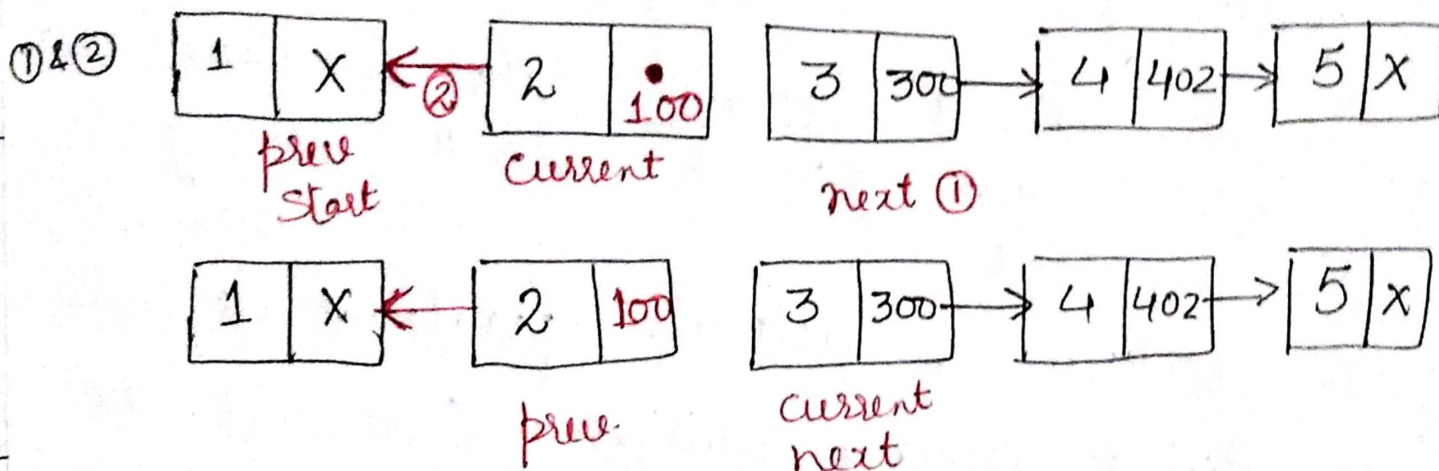 ①&② 1 X ② 2 100 3 300 4 402 5 X
prev current next ①
start
1 X 2 100 3 300 4 402 5 X
prev. current
next